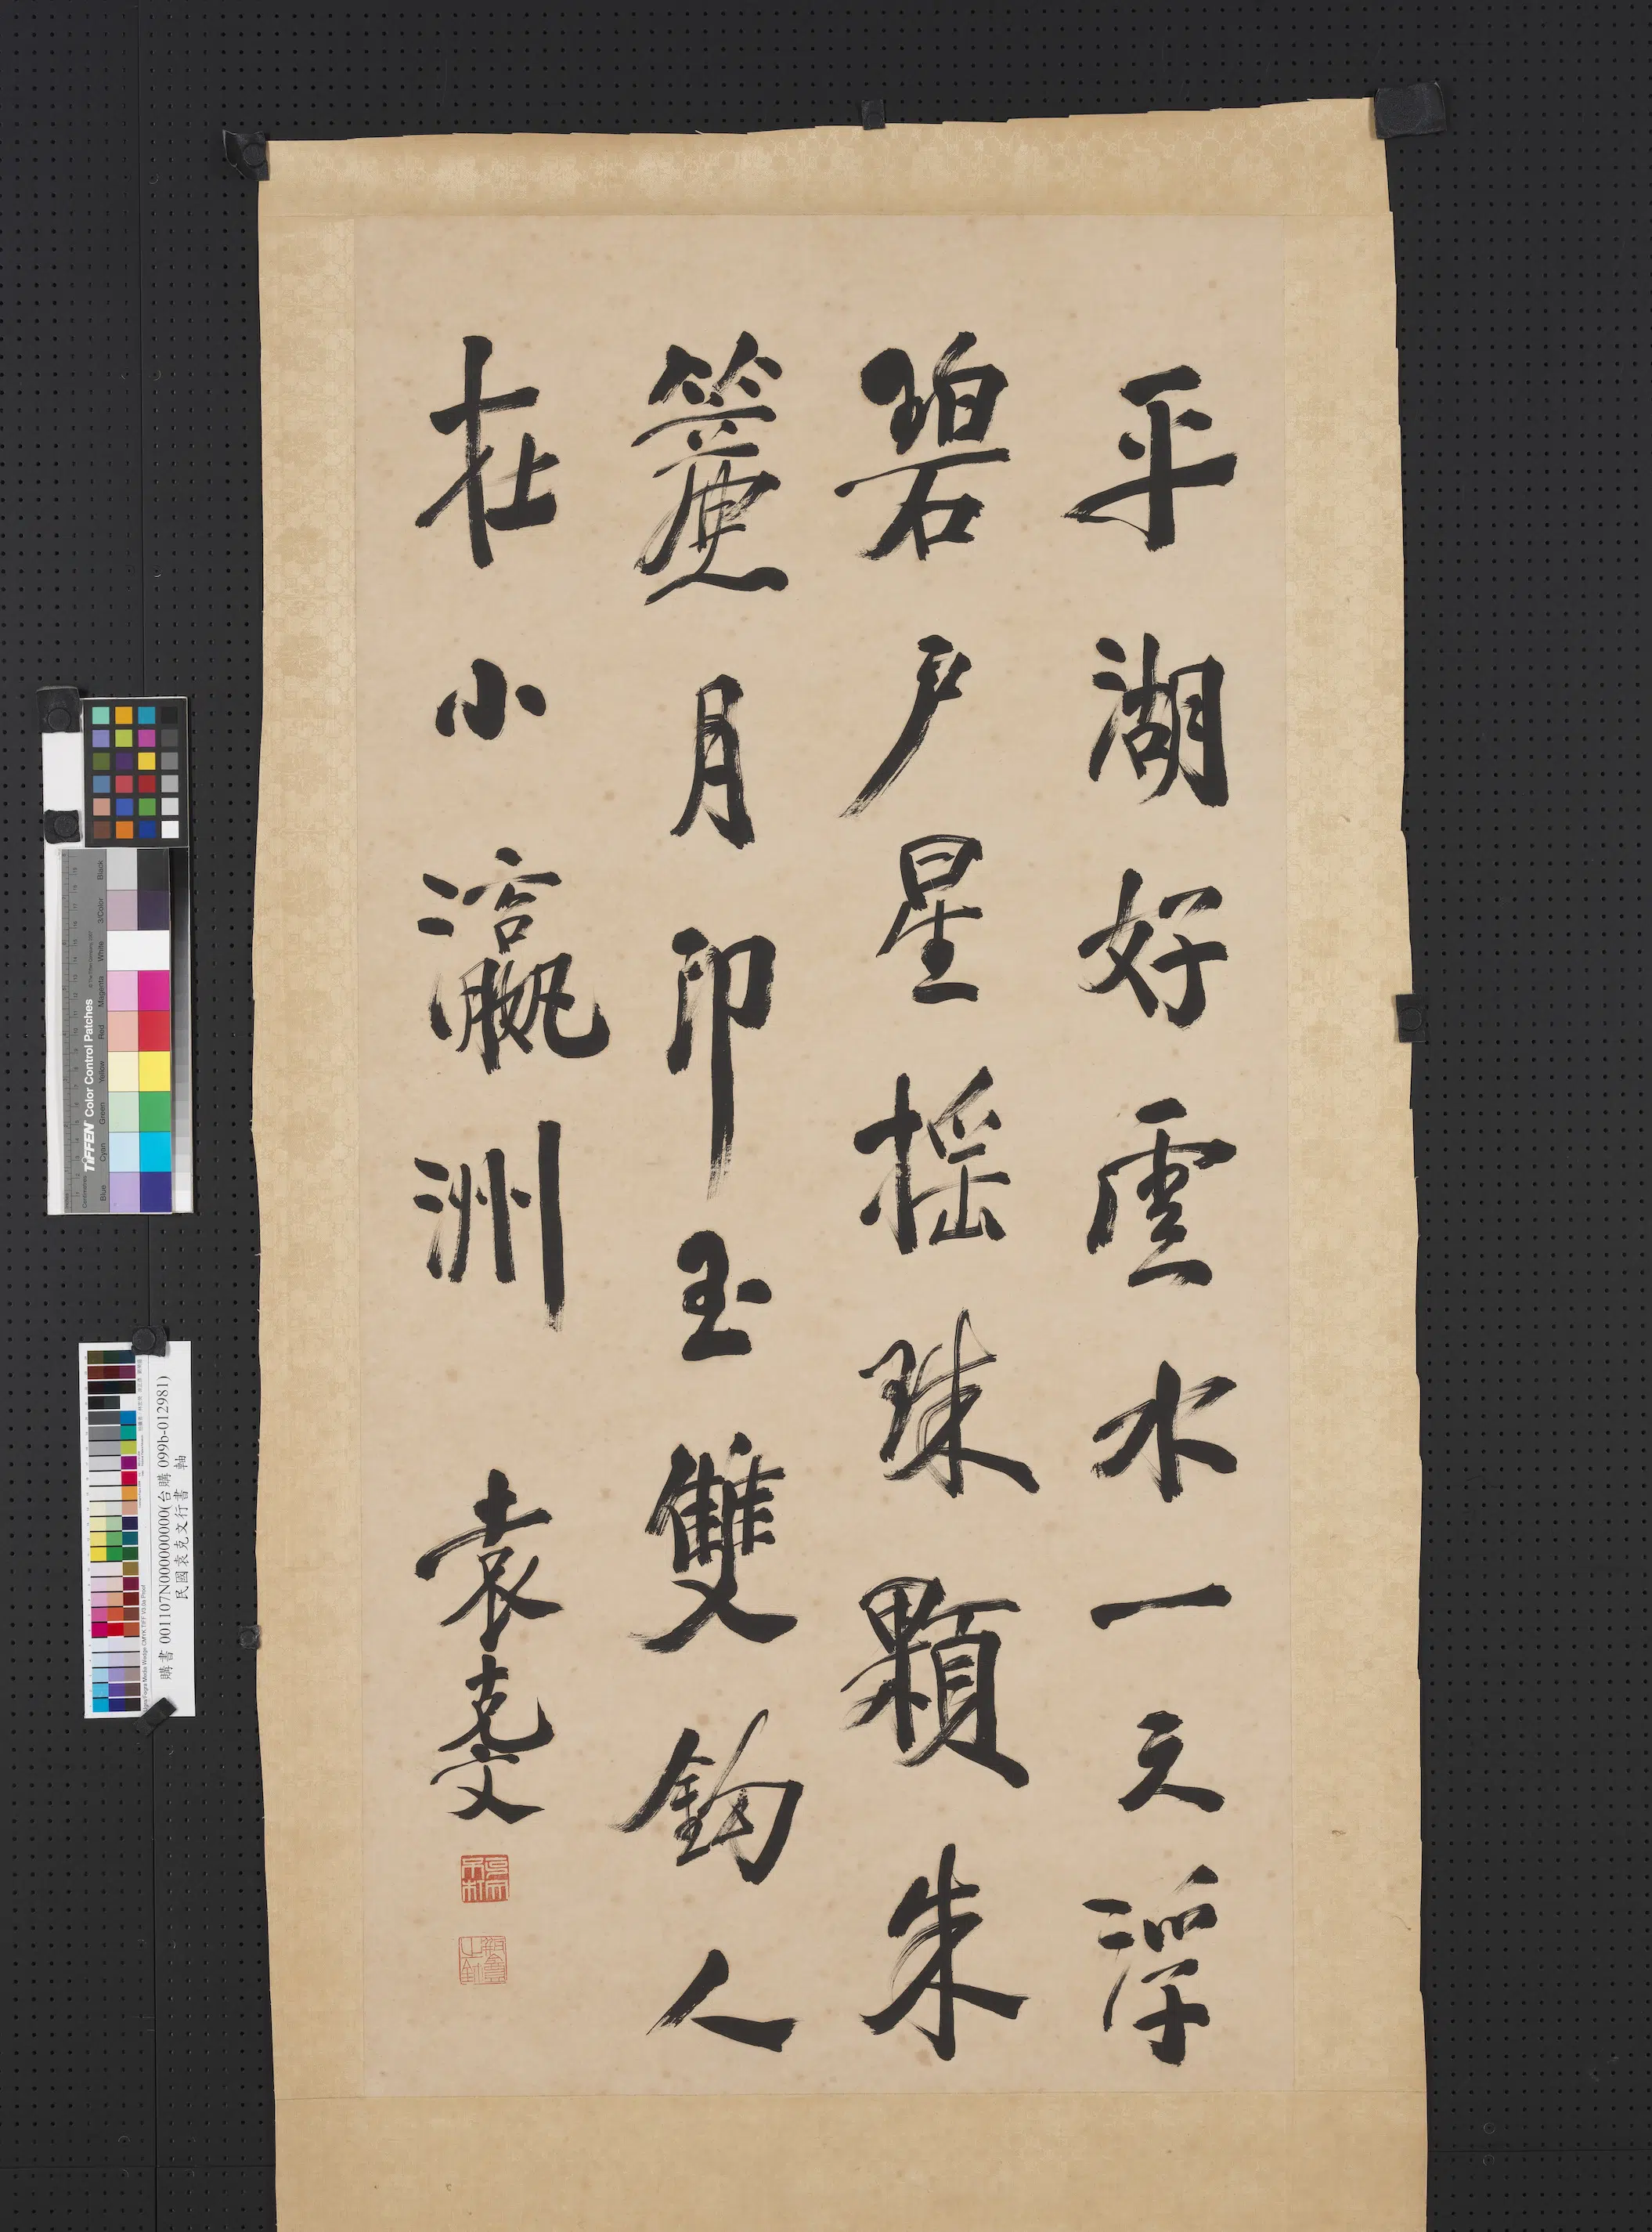 平湖好雲水一天浮
碧戶星搖珠顆朱
簾月印玉雙鈎人
在小瀛洲
袁克文
購書 001107N000000000(台購 099b-012981)
民國袁克文行書 軸
TIFFEN Color Control Patches
Blue Cyan Green Yellow Red Magenta White 3/Color Black